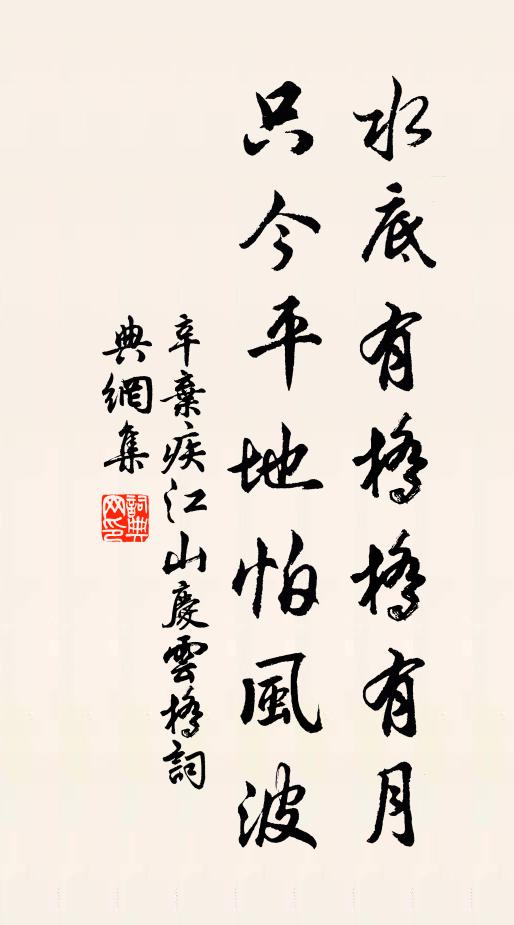 水底有橋橋有月
只今平地怕風波
辛棄疾江山慶雲橋詞
典網集
詞典網印